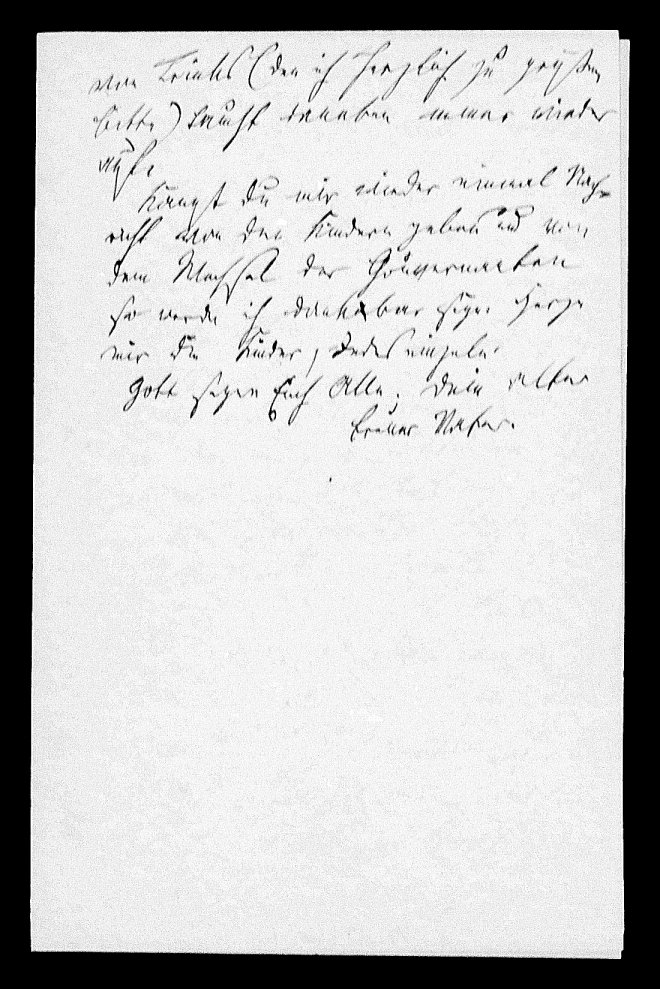 von Trinks (den ich herzlich zu grüßen
bitte) taucht daneben immer wieder
auf.
Kannst Du mir wieder einmal Nach-
richt von den Kindern geben und von
dem Wechsel der Gouvernanten
so werde ich dankbar sein. Herze
mir die Kinder, Jedes einzeln.
Gott segne Euch Alle. Dein alter
treuer Vater.